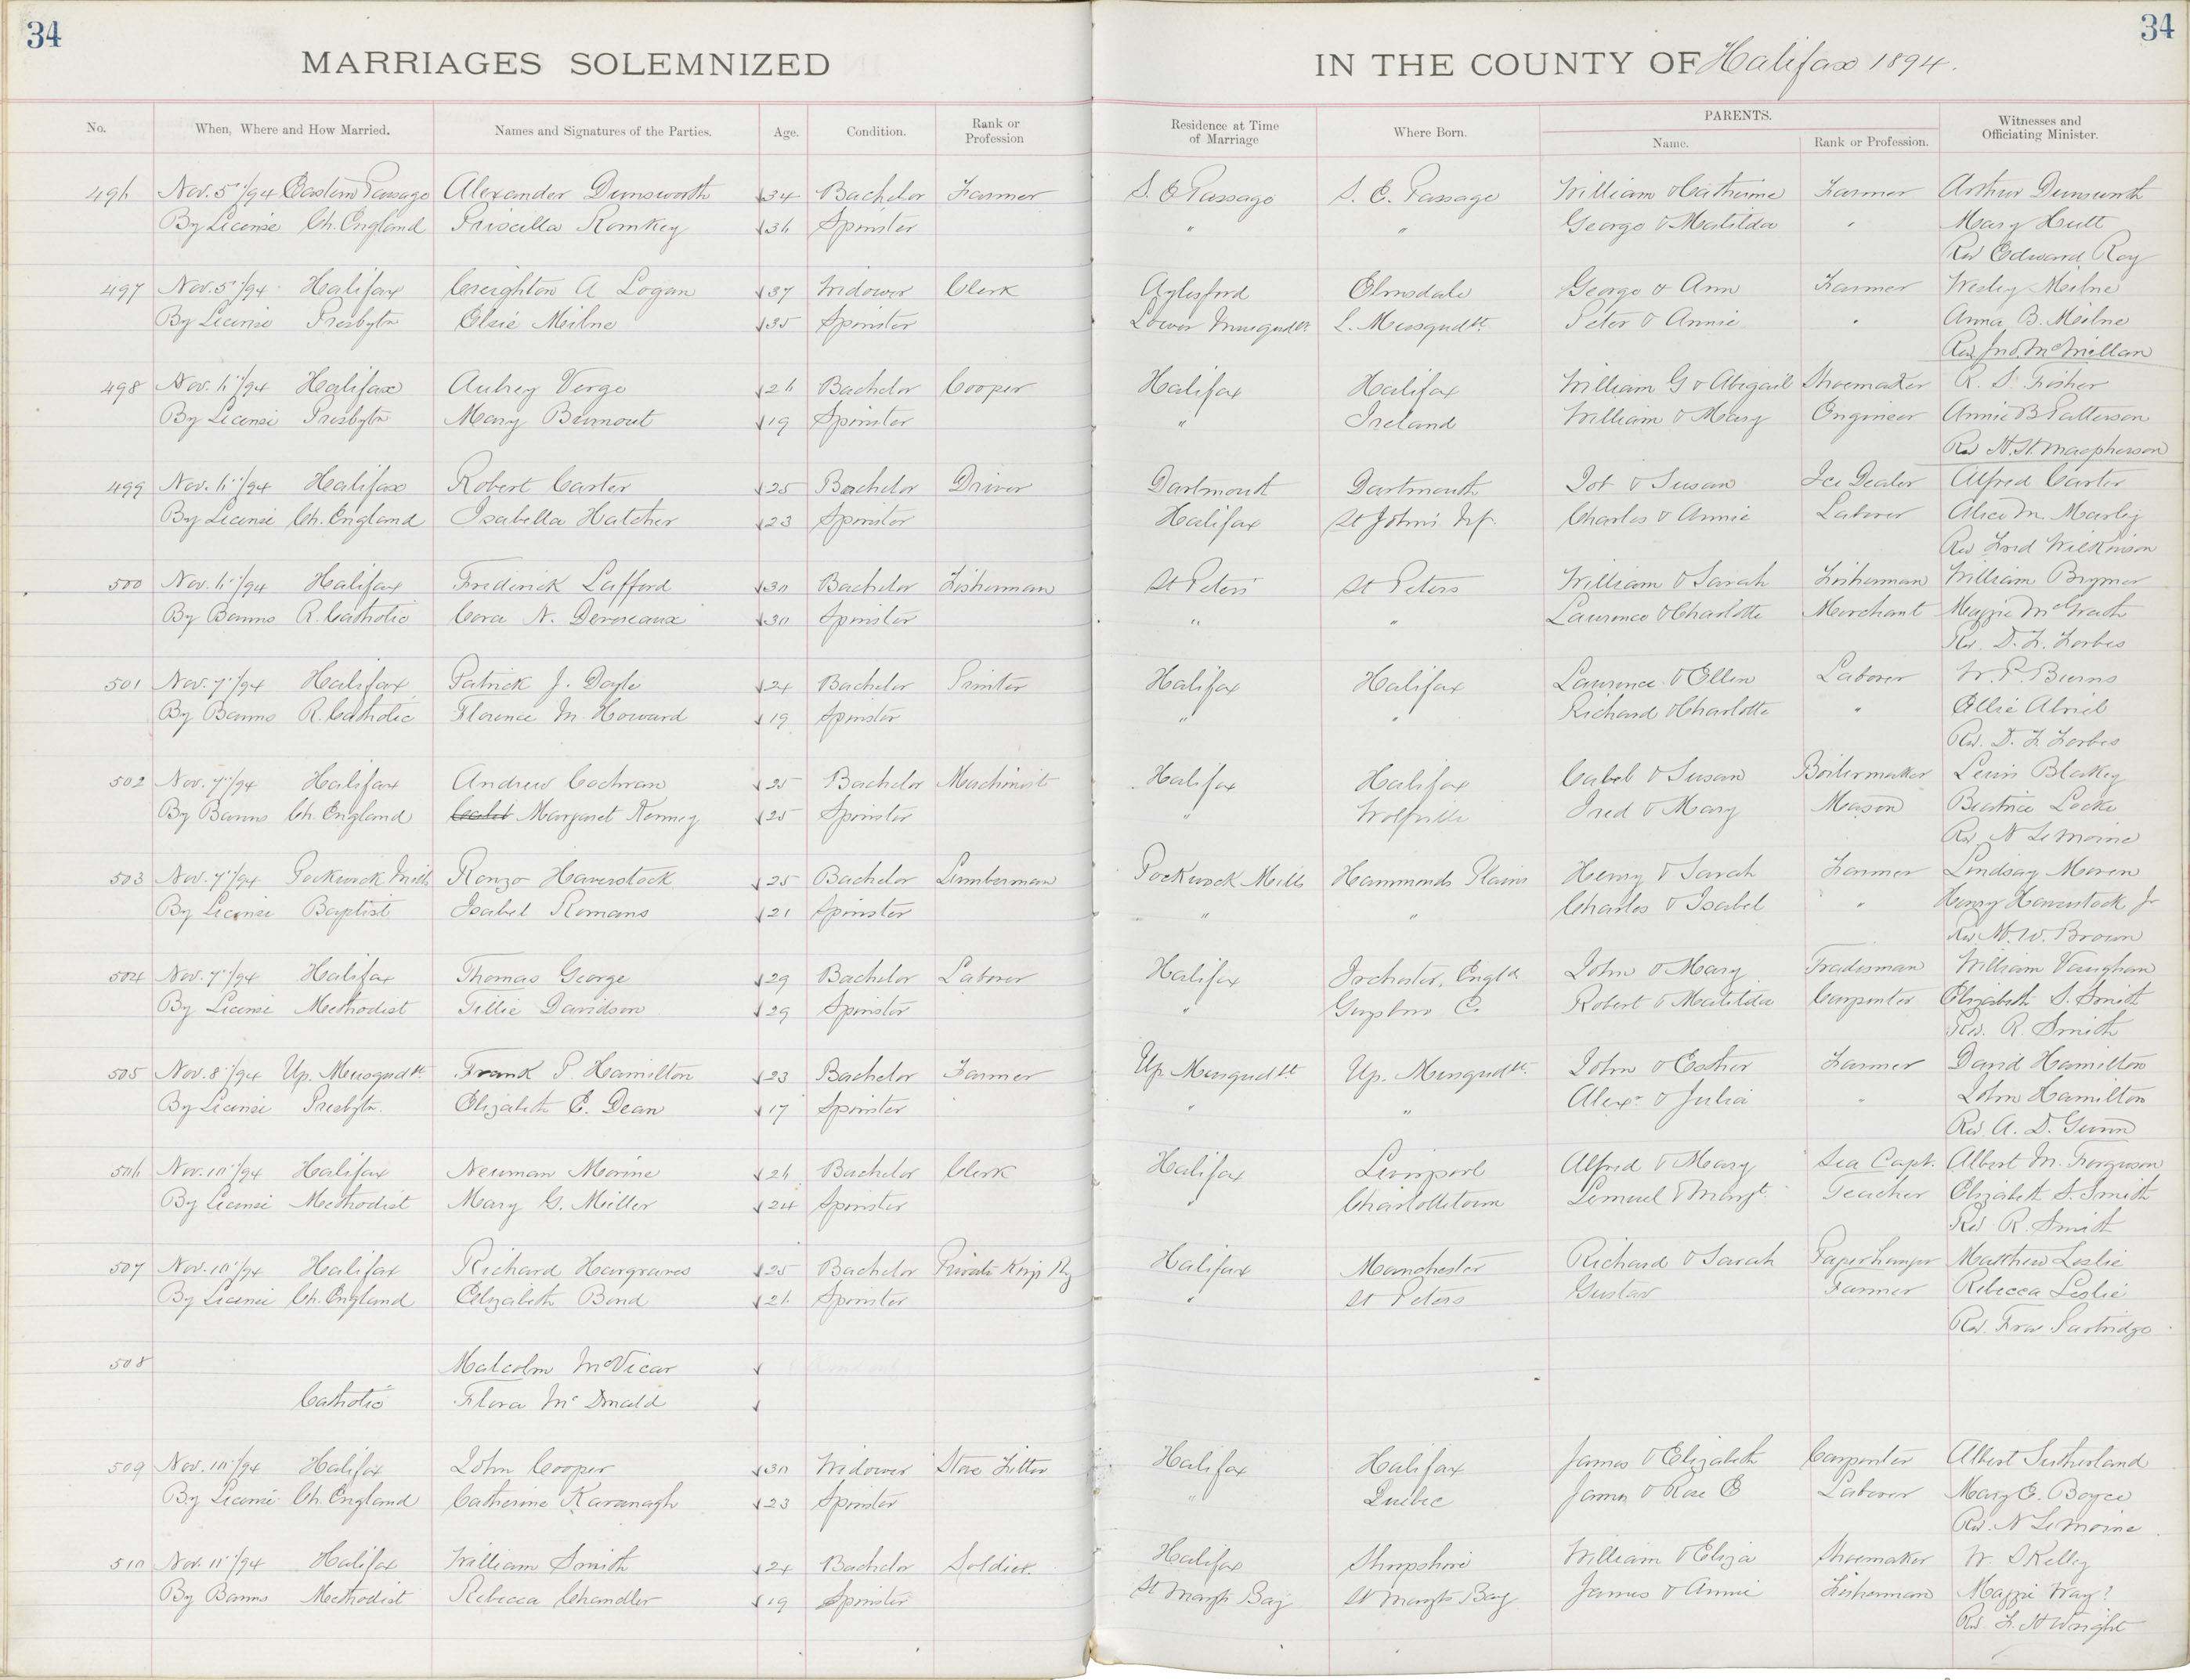 34
34
MARRIAGES SOLEMNIZED IN THE COUNTY OF Halifax 1894.
No. When, Where and How Married. Names and Signatures of the Parties. Age. Condition. Rank or Profession Residence at Time of Marriage Where Born. PARENTS. Name. Rank or Profession. Witnesses and Officiating Minister.
496 Nov. 5/94 Eastern Passage Alexander Dunsworth 34 Bachelor Farmer S. E Passage S. E. Passage William & Catherine Farmer Arthur Dunsworth
By License Ch. England Priscilla Romkey 36 Spinster " " George & Matilda " Mary Hutt
Rev Edward Roy
497 Nov. 5/94 Halifax Creighton A Logan 37 Widower Clerk Aylesford Elmsdale George & Ann Farmer Wesley Milne
By License Presbytn Elsie Milne 35 Spinster Lower Musqudt L. Musqudt. Peter & Annie " Anna B. Milne
Rev Jno. McMillan
498 Nov. 6/94 Halifax Aubrey Verge 26 Bachelor Cooper Halifax Halifax William G & Abigail Shoemaker R. S. Fisher
By License Presbytn Mary 19 Spinster " Ireland William & Mary Engineer Annie B Patterson
Rev H. H. Macpherson
499 Nov. 6/94 Halifax Robert Carter 25 Bachelor Driver Dartmouth Dartmouth Job & Susan Ice Dealer Alfred Carter
By License Ch. England Isabella Hatcher 23 Spinster Halifax St John's Nf. Charles & Annie Laborer Alice M. Marley
Rev Fred Wilkinson
500 Nov. 6/94 Halifax Frederick Lafford 30 Bachelor Fisherman St Peters St Peters William & Sarah Fisherman William Brymer
By Banns R. Catholic Cora N. Devereaux 30 Spinster " " Laurence & Charlotte Merchant Maggie McGrath
Rev. D. F. Forbes
501 Nov. 7/94 Halifax Patrick J. Doyle 24 Bachelor Printer Halifax Halifax Laurence & Ellen Laborer W. P. Burns
By Banns R. Catholic Florence M. Howard 19 Spinster " " Richard & Charlotte " Ellie
Rev. D. F. Forbes
502 Nov. 7/94 Halifax Andrew Cochran 25 Bachelor Machinist Halifax Halifax Cabel & Susan Boilermaker Lewis Blakey
By Banns Ch. England Margaret Kenney 25 Spinster " Wolfville Fred & Mary Mason Beatrice Locke
Rev N LeMoine
503 Nov. 7/94 Pockwock Mills Ronzo Haverstock 25 Bachelor Lumberman Pockwock Mills Hammonds Plains Henry & Sarah Farmer Lindsay Moren
By License Baptist Isabel Romans 21 Spinster " " Charles & Isabel " Henry Haverstock Jr
Rev M. W. Brown
504 Nov. 7/94 Halifax Thomas George 29 Bachelor Laborer Halifax Engld. John & Mary Tradesman William Vaughan
By License Methodist Tillie Davidson 29 Spinster " Guysboro Co Robert & Matilda Carpenter Elizabeth S. Smith
Rev. R. Smith
505 Nov. 8/94 Up. Musqudt. Frank P. Hamilton 23 Bachelor Farmer Up Musqudt Up. Musqudt. John & Esther Farmer David Hamilton
By License Presbytn. Elizabeth E. Dean 17 Spinster " " Alexr & Julia " John Hamilton
Rev A. D. Gunn
506 Nov. 10/94 Halifax Newman Morine 26 Bachelor Clerk Halifax Liverpool Alfred & Mary Sea Capt. Albert M. Forguson
By License Methodist Mary G. Miller 24 Spinster " Charlottetown Lemuel & Margt. Teacher Elizabeth S. Smith
Rev. R. Smith
507 Nov. 10/94 Halifax Richard Hargraves 25 Bachelor Private King's Rg Halifax Manchester Richard & Sarah Paperhanger Matthew Leslie
By License Ch. England Elizabeth Bond 26 Spinster " St Peters Gustav Farmer Rebecca Leslie
Rev. Fran Partridge
508 Malcolm McVicar
Catholic Flora McDonald
509 Nov. 10/94 Halifax John Cooper 30 Widower Stove Fitter Halifax Halifax James & Elizabeth Carpenter Albert Sutherland
By License Ch. England Catherine Kavanagh 23 Spinster " Quebec James & Rose E Laborer Mary E. Boyce
Rev. N LeMoine
510 Nov. 11/94 Halifax William Smith 24 Bachelor Soldier Halifax Shropshire William & Eliza Shoemaker W. S Kelly
By Banns Methodist Rebecca Chandler 19 Spinster St Margts Bay St Margts Bay James & Annie Fisherman Maggie Way?
Rev F. H Wright